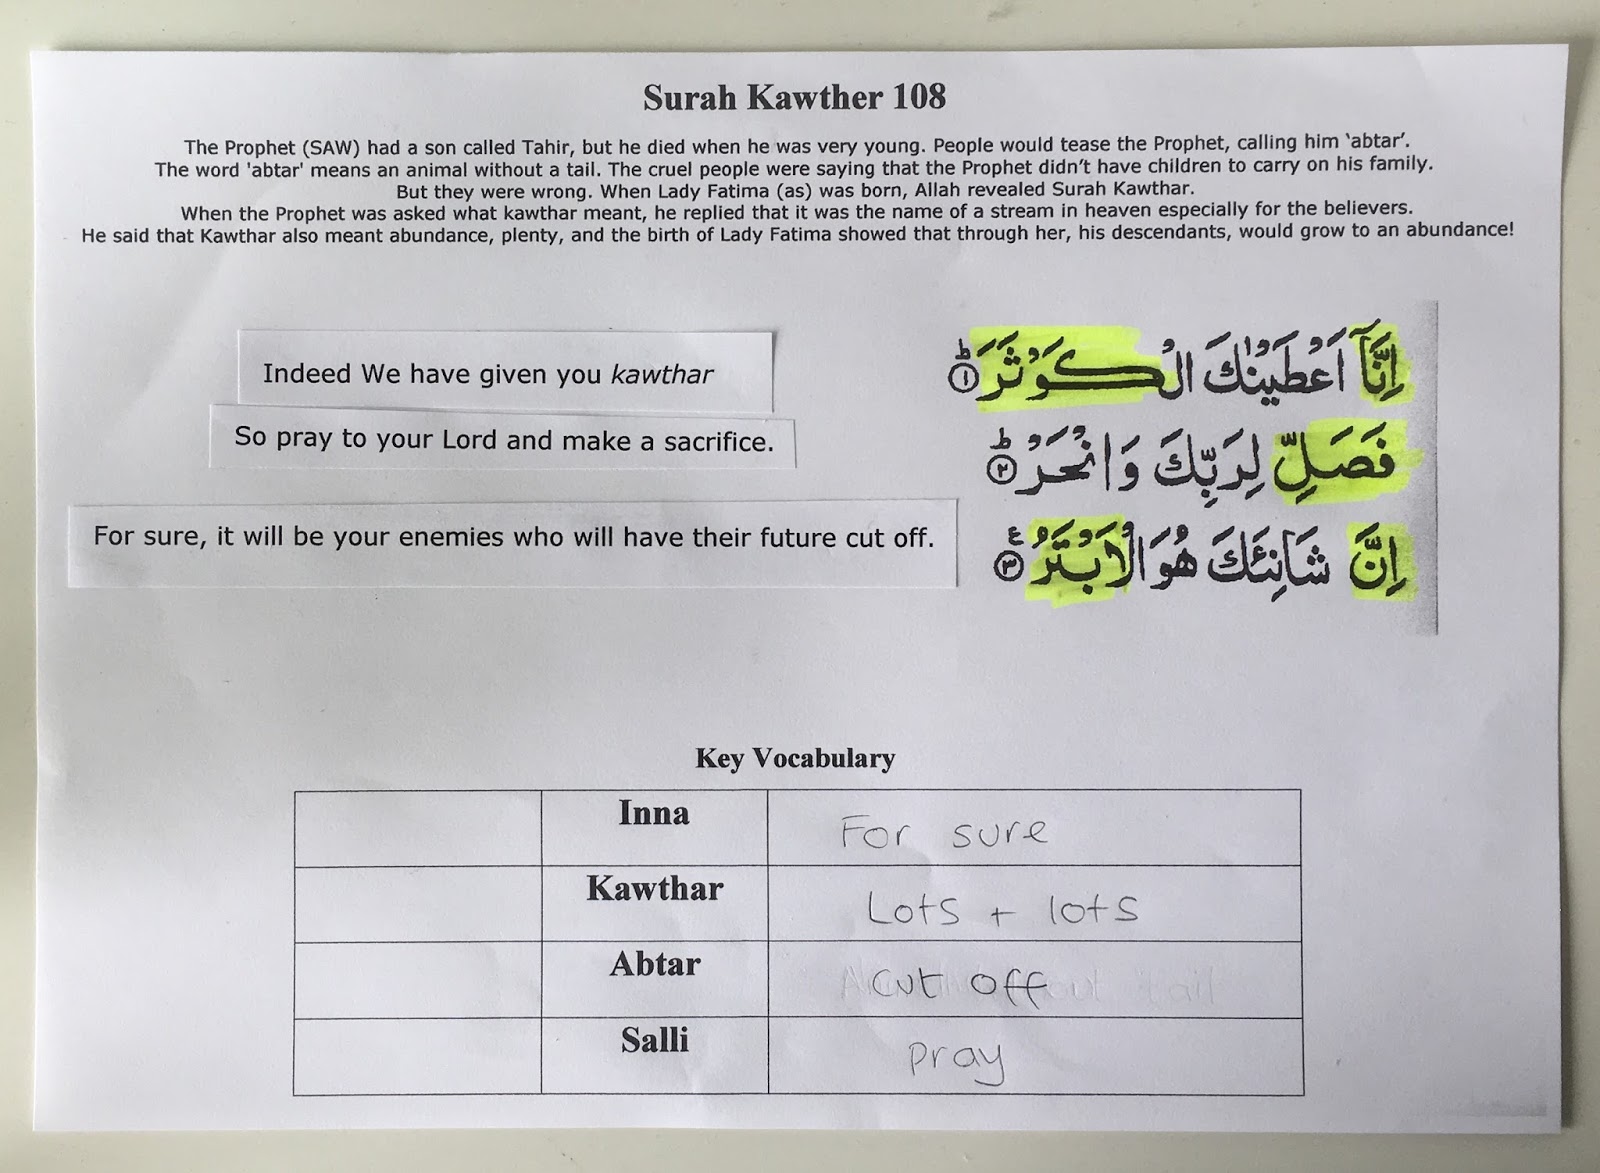 Surah Kawther 108
The Prophet (SAW) had a son called Tahir, but he died when he was very young. People would tease the Prophet, calling him ‘abtar’.
The word 'abtar' means an animal without a tail. The cruel people were saying that the Prophet didn’t have children to carry on his family.
But they were wrong. When Lady Fatima (as) was born, Allah revealed Surah Kawthar.
When the Prophet was asked what kawthar meant, he replied that it was the name of a stream in heaven especially for the believers.
He said that Kawthar also meant abundance, plenty, and the birth of Lady Fatima showed that through her, his descendants, would grow to an abundance!
Indeed We have given you kawthar
اِنَّآ اَعْطَيْنٰكَ الْكَوْثَرَ ؕ ۝۱
So pray to your Lord and make a sacrifice.
فَصَلِّ لِرَبِّكَ وَانْحَرْ ؕ ۝۲
For sure, it will be your enemies who will have their future cut off.
اِنَّ شَانِئَكَ هُوَ الْاَبْتَرُ ۝۳ ع
Key Vocabulary
Inna For sure
Kawthar Lots + lots
Abtar cut off
Salli pray